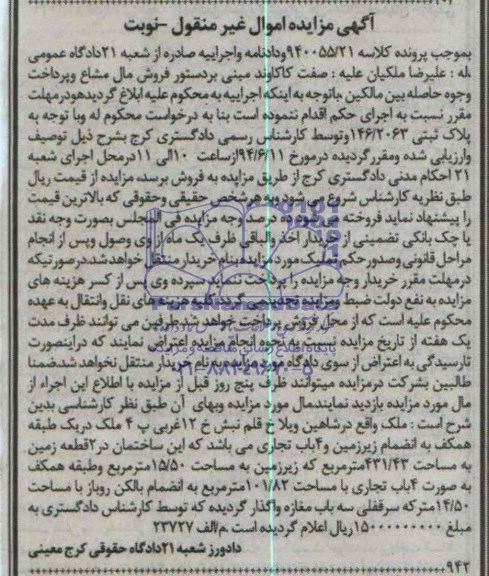 آگهی مزایده اموال غیر منقول -نوبت
بموجب پرونده کلاسه ۹۴۰۰۵۵/۲۱ودادنامه واجراییه صادره از شعبه ۲۱دادگاه عمومی
له : علیرضا ملکیان علیه : صفت کاکاوند مبنی بردستور فروش مال مشاع وپرداخت
وجوه حاصله بین مالکین ،باتوجه به اینکه اجراییه به محکوم علیه ابلاغ گردیدهودرمهلت
مقرر نسبت به اجرای حکم اقدام ننموده است بنا به درخواست محکوم له وبا توجه به
پلاک ثبتی ۱۴۶/۲۰۶۳وتوسط کارشناس رسمی دادگستری کرج بشرح ذیل توصیف
وارزیابی شده ومقررگردیده درمورخ ۹۴/۶/۱۱ازساعت ۱۰الی ۱۱درمحل اجرای شعبه
۲۱ احکام مدنی دادگستری کرج از طریق مزایده به فروش برسد، مزایده از قیمت ریال
طبق نظریه کارشناس شروع می شود وبه هرشخص حقیقی وحقوقی که بالاترین قیمت
را پیشنهاد نماید فروخته می‌شود ده درصد وجه مزایده فی المجلس بصورت وجه نقد
یا چک بانکی تضمینی از خریدار اخذ والباقی ظرف یک ماه از وی وصول وپس از انجام
مراحل قانونی وصدورحکم تملیک مورد مزایده بنام خریدار منتقل خواهدشد.درصورتیکه
درمهلت مقرر خریدار وجه مزایده را پرداخت ننماید سپرده وی پس از کسر هزینه های
مزایده به نفع دولت ضبط ومزایده تجدید می گردد کلیه هزینه های نقل وانتقال به عهده
محکوم علیه است که از محل فروش پرداخت خواهد شد.طرفین می توانند ظرف مدت
یک هفته از تاریخ مزایده نسبت به نحوه انجام مزایده اعتراض نمایند که دراینصورت
تارسیدگی به اعتراض از سوی دادگاه مورد مزایده بنام خریدار منتقل نخواهدشد.ضمنا
طالبین بشرکت درمزایده میتوانند ظرف پنج روز قبل از مزایده با اطلاع این اجراء از
مال مورد مزایده بازدید نمایند.مال مورد مزایده وبهای آن طبق نظر کارشناسی بدین
شرح است : ملک واقع درشاهین ویلا خ قلم نبش خ ۱۲غربی پ ۴ ملک دریک طبقه
همکف به انضمام زیرزمین و۴باب تجاری می باشد که این ساختمان در۲قطعه زمین
به مساحت ۴۳۱/۴۳مترمربع که زیرزمین به مساحت ۱۵/۵۰مترمربع وطبقه همکف
به صورت ۴باب تجاری با مساحت ۱۰۱/۸۲مترمربع به انضمام بالکن روباز با مساحت
۱۴/۵۰مترکه سرقفلی سه باب مغازه واگذار گردیده که توسط کارشناس دادگستری به
مبلغ ۱۵۰۰۰۰۰۰۰۰۰ریال اعلام گردیده است .م/الف ۲۳۷۲۷
دادورز شعبه ۲۱دادگاه حقوقی کرج معینی
۹۴۲
پایگاه اطلاع رسانی مناقصه و مزایده
۰۲۱-۸۸۳۴۹۶۷۰-۵